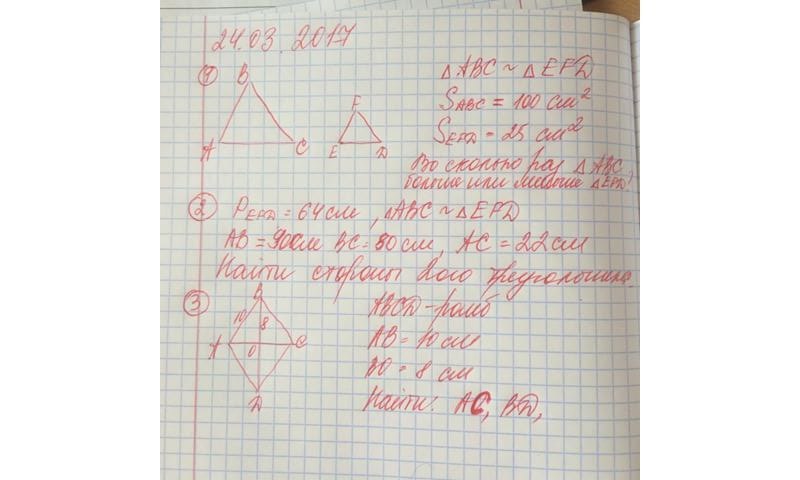 24.03.2017
① B A C F E D
△ABC ~ △EFD
S ABC = 100 см²
S EFD = 25 см²
Во сколько раз △ABC
больше или меньше △EFD?
② P EFD = 64 см, △ABC ~ △EFD
AB = 90 см BC = 80 см, AC = 22 см
Найти стороны 2ого треугольника.
③ B 10 8 A O C D
ABCD - ромб
AB = 10 см
BO = 8 см
Найти: AC, BD,